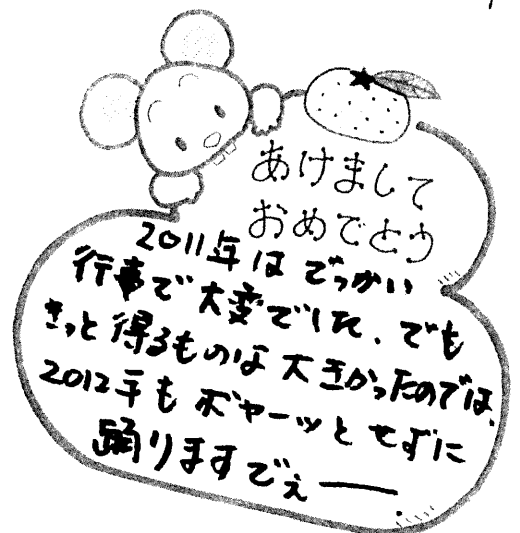 あけまして
おめでとう
2011年は でっかい
行事で大変でした、でも
きっと得るものは大きかったのでは、
2012年も ボヤーッとせずに
踊りますでぇー